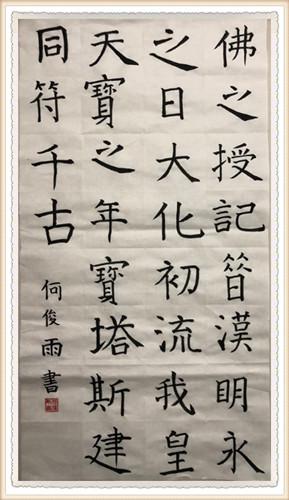 佛之授記昔漢明永
之日大化初流我皇
天寶之年寶塔斯建
同符千古
何俊雨書